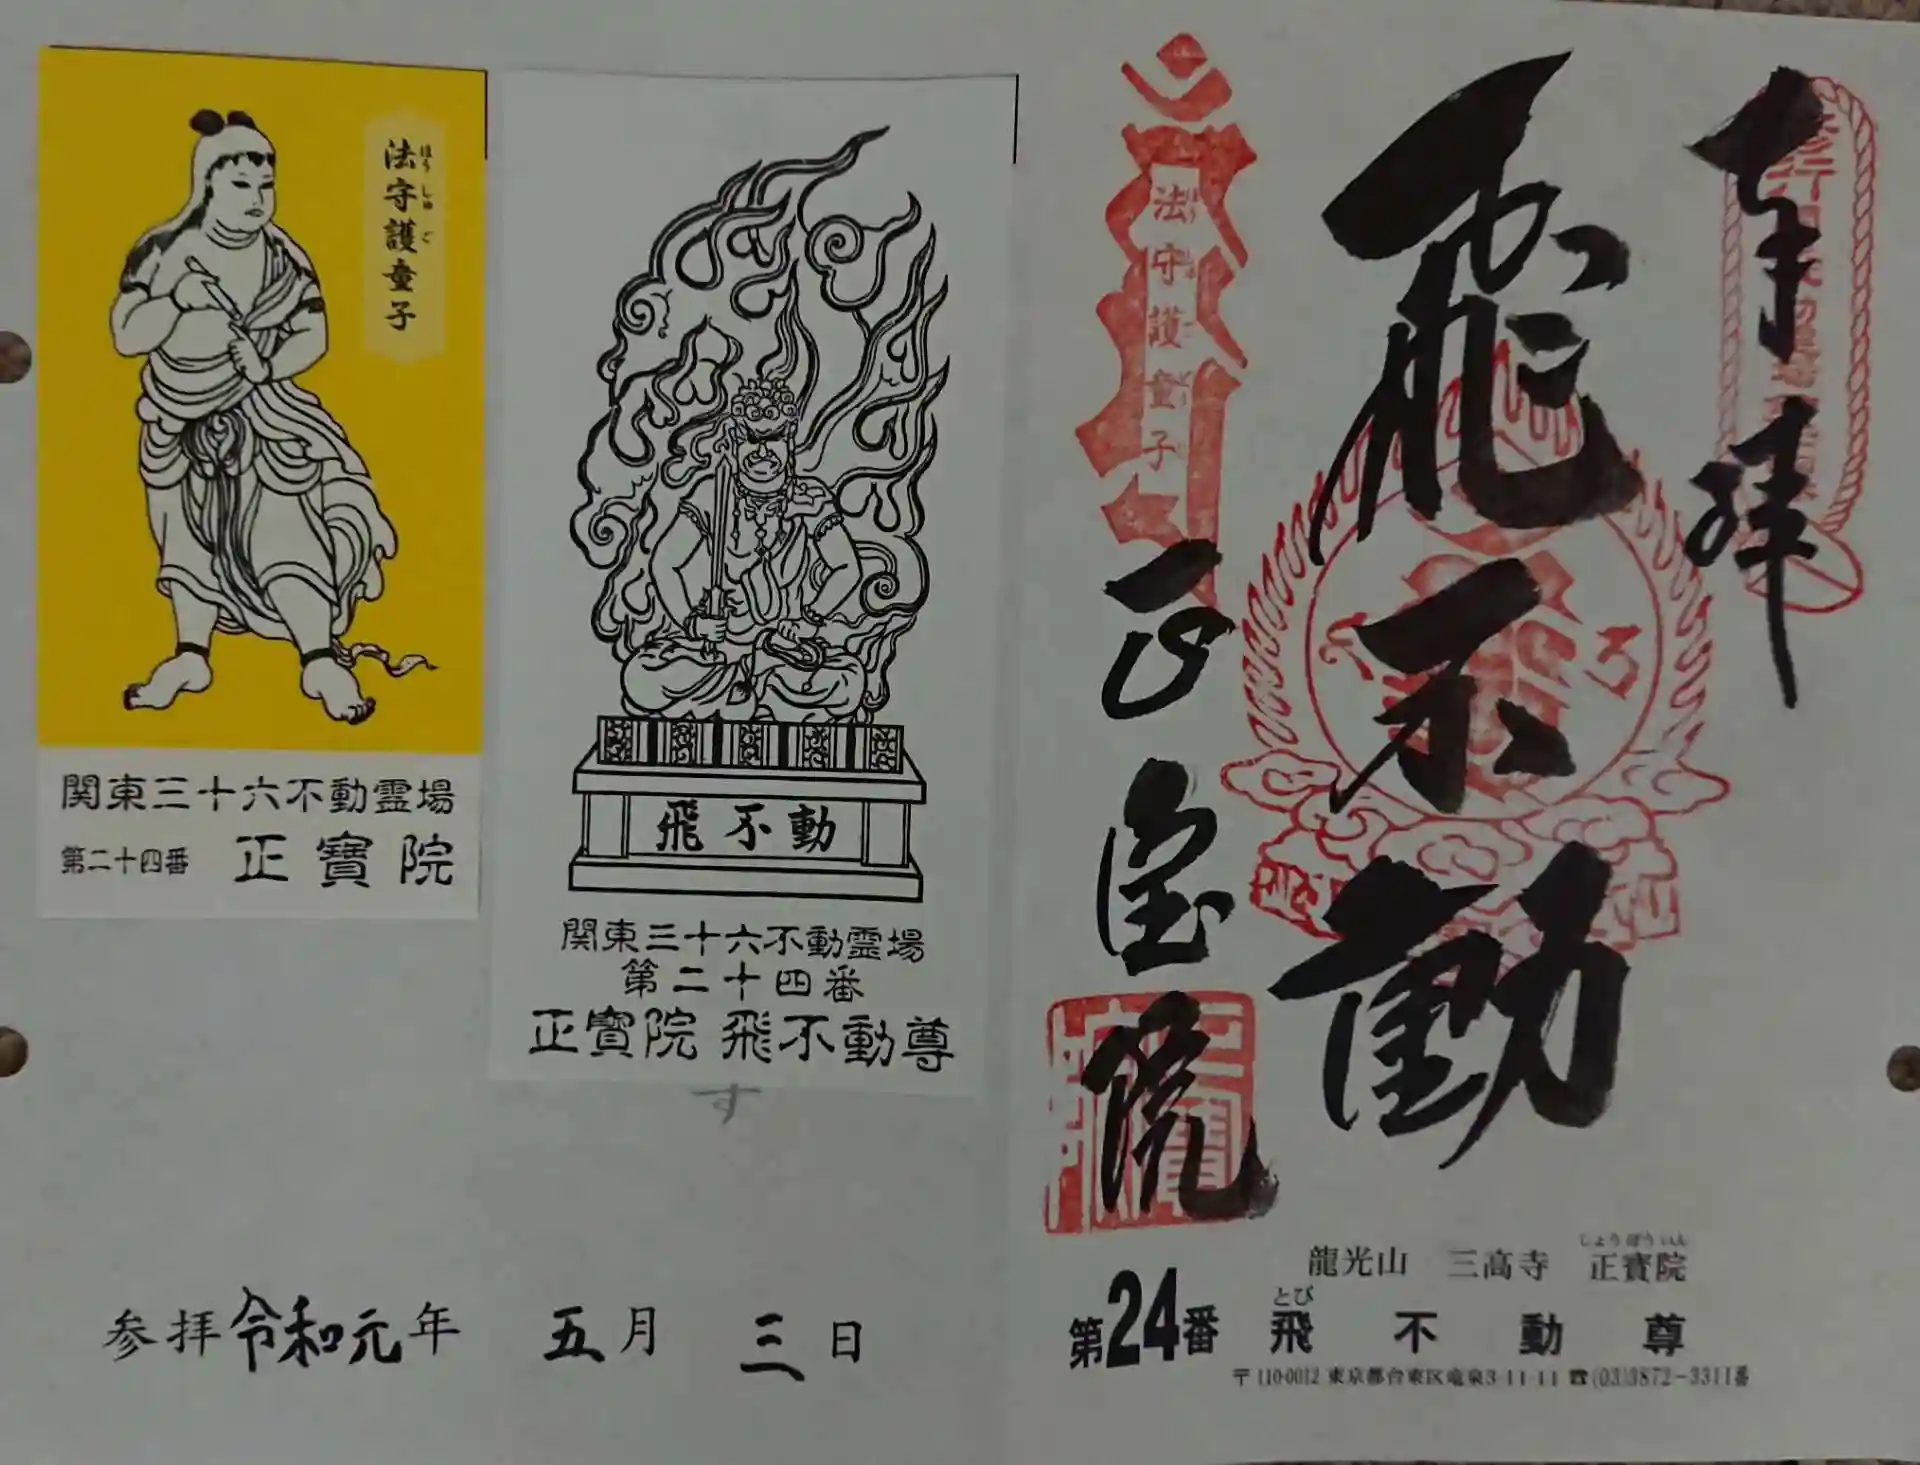 奉拝
飛不動
正宝院
法守護童子
第24番
龍光山 三高寺 正寳院
しょうぼういん
とび
飛不動尊
〒110-0012 東京都台東区竜泉3-11-11 ☎(03)3872-3311番
飛不動
関東三十六不動霊場
第二十四番
正寳院 飛不動尊
す
法守護童子
ほうしゅご
関東三十六不動霊場
第二十四番 正寳院
参拝 令和元年 五月 三日